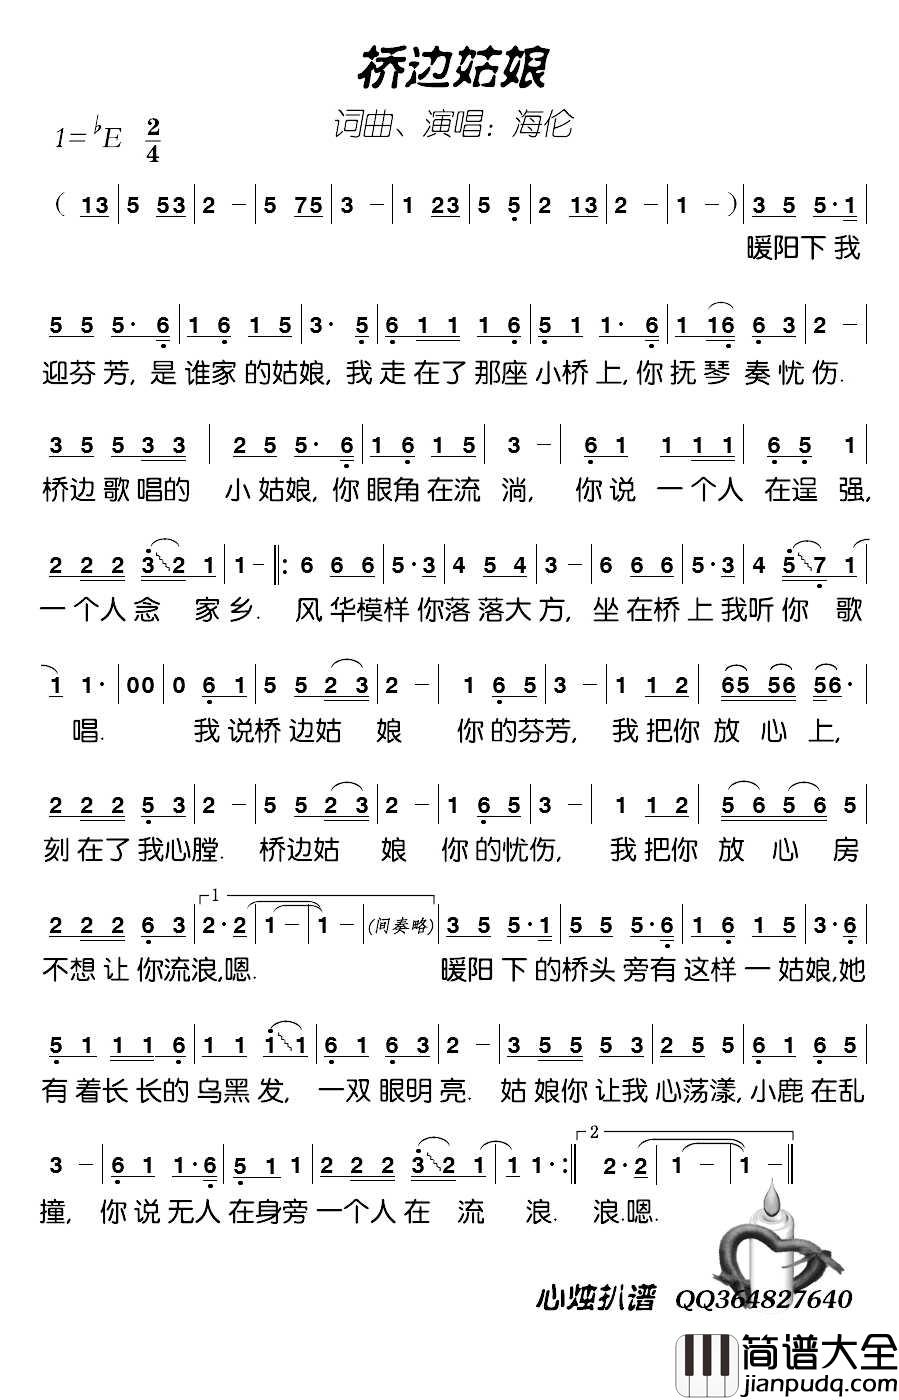 桥边姑娘
词曲、演唱：海伦
1=♭E 2/4
( 13 | 5 53 | 2 － | 5 75 | 3 － | 1 23 | 5 5 | 2 13 | 2 － | 1 － ) | 3 5 5·1 |
暖阳下我
5 5 5· 6 | 1 6 1 5 | 3· 5 | 6 1 1 1 6 | 5 1 1· 6 | 1 16 6 3 | 2 － |
迎芬芳, 是谁家的姑娘, 我走在了那座小桥上,你抚琴奏忧伤.
3 5 5 3 3 | 2 5 5· 6 | 1 6 1 5 | 3 － | 6 1 1 1 1 | 6 5 1 |
桥边歌唱的 小姑娘, 你眼角在流淌, 你说一个人在逞强,
2 2 2 3 2 1 | 1 － ‖: 6 6 6 | 5·3 | 4 5 4 | 3 － | 6 6 6 | 5·3 | 4 5 7 1 |
一个人念家乡. 风华模样你落落大方, 坐在桥上我听你歌
1 1· | 0 0 | 0 6 1 | 5 5 2 3 | 2 － | 1 6 5 | 3 － | 1 1 2 | 65 56 56· |
唱. 我说桥边姑娘 你的芬芳, 我把你放心上,
2 2 2 5 3 | 2 － | 5 5 2 3 | 2 － | 1 6 5 | 3 － | 1 1 2 | 5 6 5 6 5 |
刻在了我心膛. 桥边姑娘 你的忧伤, 我把你放心房
1
2 2 2 6 3 | 2·2 | 1 － | 1 － (间奏略) | 3 5 5·1 | 5 5 5·6 | 1 6 1 5 | 3·6 |
不想让你流浪,嗯. 暖阳下的桥头旁有这样一姑娘,她
5 1 1 1 6 | 1 1 1 1 | 6 1 6 3 | 2 － | 3 5 5 5 3 | 2 5 5 | 6 1 6 5 |
有着长长的乌黑发, 一双眼明亮. 姑娘你让我心荡漾,小鹿在乱
2
3 － | 6 1 1·6 | 5 1 1 | 2 2 2 3 2 1 | 1 1· :‖ 2·2 | 1 － | 1 － ‖
撞, 你说无人在身旁一个人在流浪. 浪.嗯.
心烛扒谱 QQ364827640
简谱大全
jianpudq.com